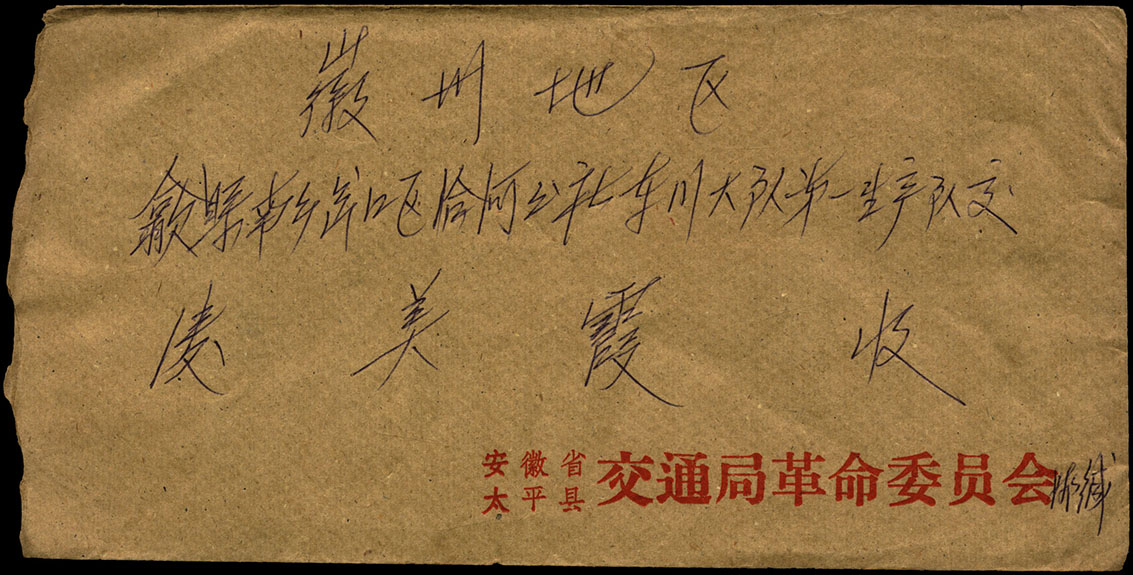 徽州地区
歙縣南乡岔口区洽河公社东川大队第一生产队交
凌美霞收
安徽省
太平县
交通局革命委员会 缄